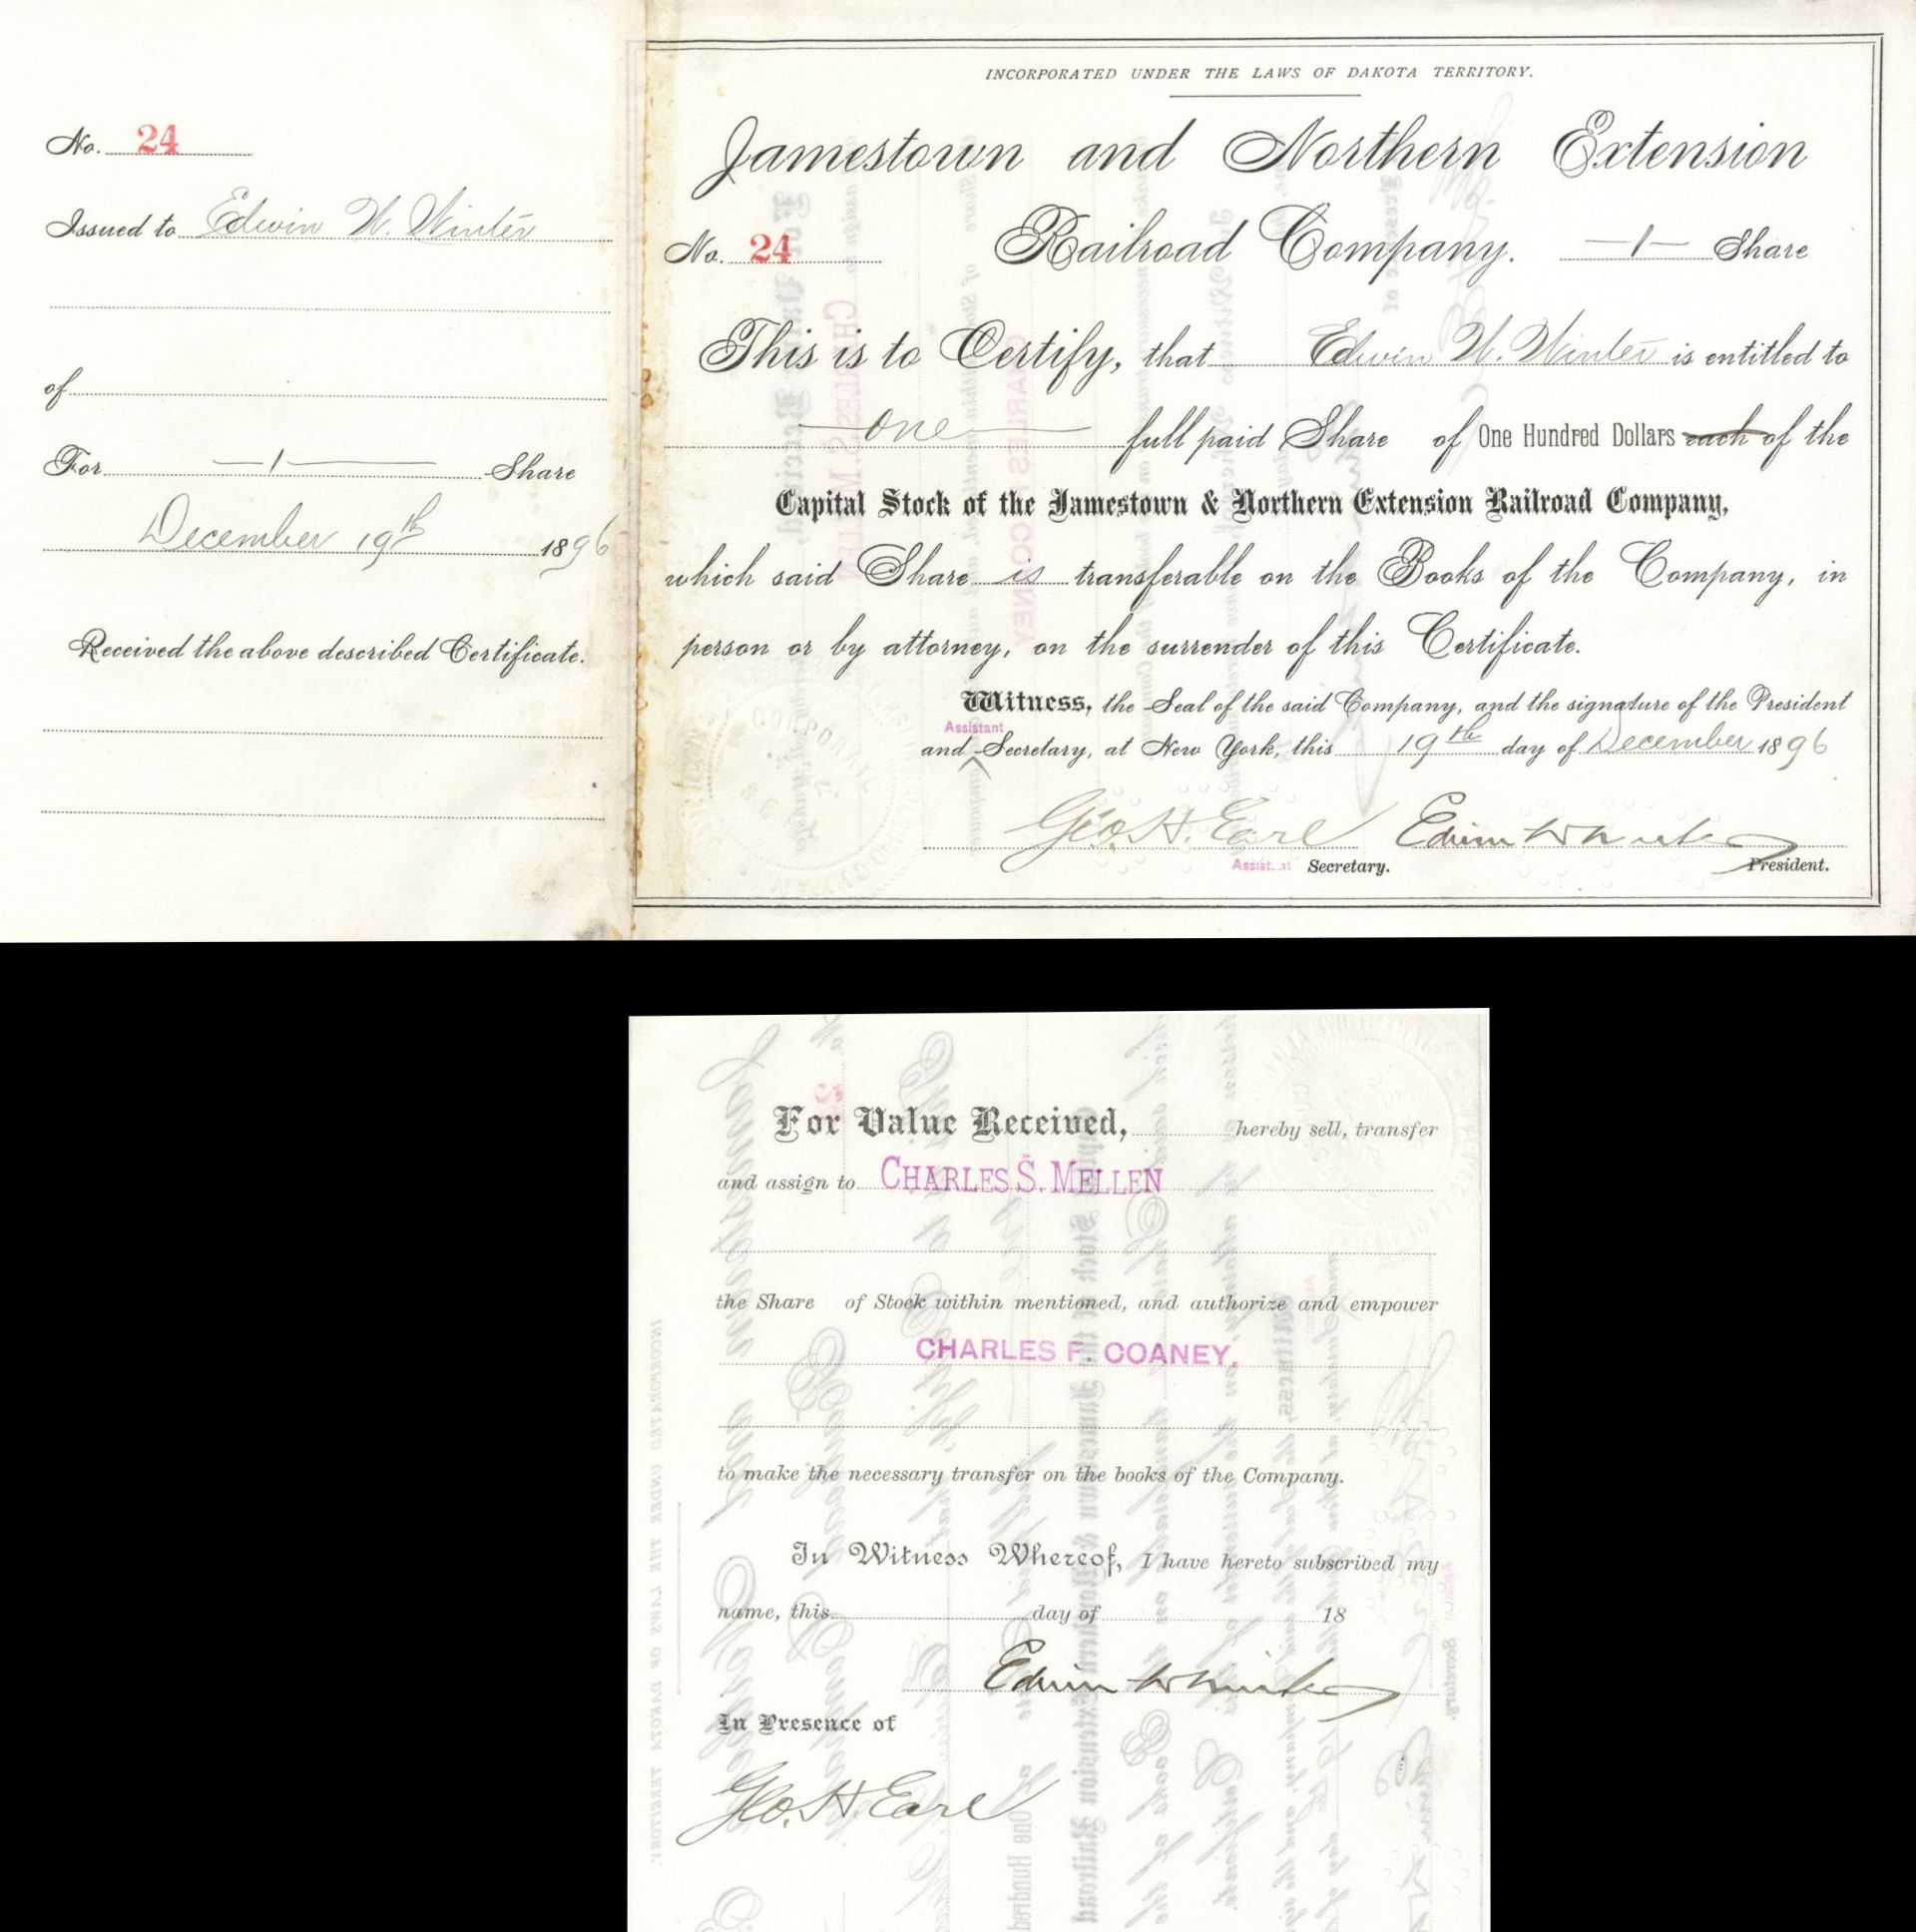 No. 24
Issued to Edwin W. Winter
of
For —1— Share
December 19th 1896
Received the above described Certificate.
INCORPORATED UNDER THE LAWS OF DAKOTA TERRITORY.
Jamestown and Northern Extension
No. 24 Railroad Company. —1— Share
This is to Certify, that Edwin W. Winter is entitled to
—one— full paid Share of One Hundred Dollars each of the
Capital Stock of the Jamestown & Northern Extension Railroad Company,
which said Share is transferable on the Books of the Company, in
person or by attorney, on the surrender of this Certificate.
Witness, the Seal of the said Company, and the signature of the President
Assistant
and Secretary, at New York, this 19th day of December 1896
Geo. H. Earl Edwin W Winter
Assistant Secretary. President.
For Value Received, hereby sell, transfer
and assign to CHARLES S. MELLEN
the Share of Stock within mentioned, and authorize and empower
CHARLES F. COANEY,
to make the necessary transfer on the books of the Company.
In Witness Whereof, I have hereto subscribed my
name, this day of 18
Edwin W Winter
In Presence of
Geo. H. Earl